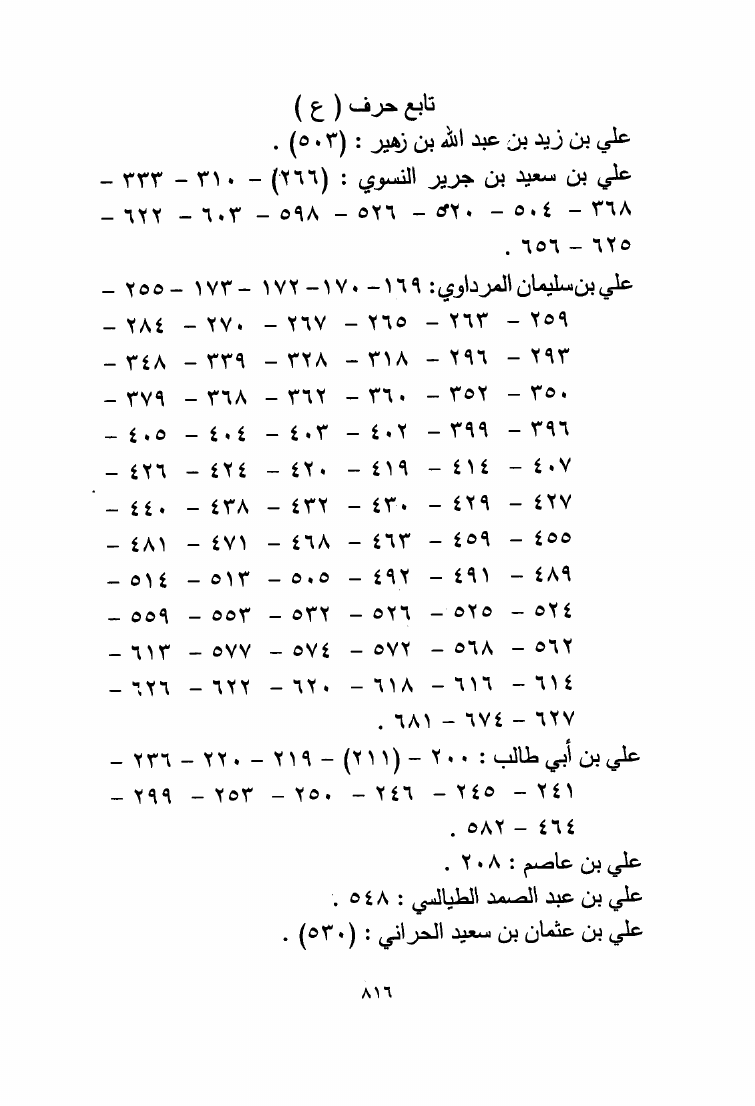 تابع حرف ( ع )
علي بن زيد بن عبد الله بن زهير : (٥٠٣) .
علي بن سعيد بن جرير النسوي : (٢٦٦) – ٣١٠ – ٣٣٣ –
٣٦٨ – ٥٠٤ – ٥٢٠ – ٥٢٦ – ٥٩٨ – ٦٠٣ – ٦٢٢ –
٦٢٥ – ٦٥٦ .
علي بن سليمان المرداوي: ١٦٩– ١٧٠– ١٧٢ – ١٧٣ – ٢٥٥ –
٢٥٩ – ٢٦٣ – ٢٦٥ – ٢٦٧ – ٢٧٠ – ٢٨٤ –
٢٩٣ – ٢٩٦ – ٣١٨ – ٣٢٨ – ٣٣٩ – ٣٤٨ –
٣٥٠ – ٣٥٢ – ٣٦٠ – ٣٦٢ – ٣٦٨ – ٣٧٩ –
٣٩٦ – ٣٩٩ – ٤٠٢ – ٤٠٣ – ٤٠٤ – ٤٠٥ –
٤٠٧ – ٤١٤ – ٤١٩ – ٤٢٠ – ٤٢٤ – ٤٢٦ –
٤٢٧ – ٤٢٩ – ٤٣٠ – ٤٣٢ – ٤٣٨ – ٤٤٠ –
٤٥٥ – ٤٥٩ – ٤٦٣ – ٤٦٨ – ٤٧١ – ٤٨١ –
٤٨٩ – ٤٩١ – ٤٩٢ – ٥٠٥ – ٥١٣ – ٥١٤ –
٥٢٤ – ٥٢٥ – ٥٢٦ – ٥٣٢ – ٥٥٣ – ٥٥٩ –
٥٦٢ – ٥٦٨ – ٥٧٢ – ٥٧٤ – ٥٧٧ – ٦١٣ –
٦١٤ – ٦١٦ – ٦١٨ – ٦٢٠ – ٦٢٢ – ٦٢٦ –
٦٢٧ – ٦٧٤ – ٦٨١ .
علي بن أبي طالب : ٢٠٠ – (٢١١) – ٢١٩ – ٢٢٠ – ٢٣٦ –
٢٤١ – ٢٤٥ – ٢٤٦ – ٢٥٠ – ٢٥٣ – ٢٩٩ –
٤٦٤ – ٥٨٢ .
علي بن عاصم : ٢٠٨ .
علي بن عبد الصمد الطيالسي : ٥٤٨ .
علي بن عثمان بن سعيد الحراني : (٥٣٠) .
٨١٦